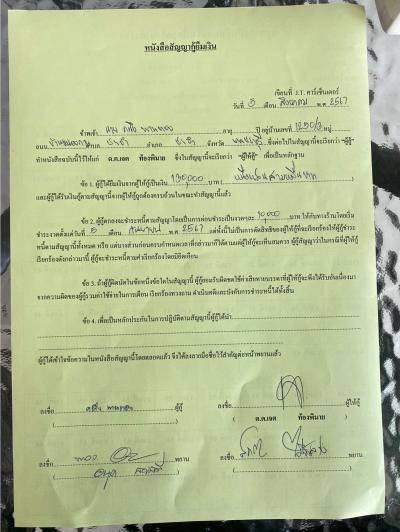 หนังสือสัญญากู้ยืมเงิน
เขียนที่ J.T. คาร์เซ็นเตอร์
วันที่ 5 เดือน สิงหาคม พ.ศ 2567
ข้าพเจ้า นาย อายุ ปี อยู่บ้านเลขที่ หมู่
ถนน ตำบล อำเภอ จังหวัด ซึ่งต่อไปในสัญญานี้จะเรียกว่า "ผู้กู้"
ทำหนังสือฉบับนี้ไว้ให้แก่ ด.ต.เจต ท้องพิมาย ซึ่งในสัญญานี้จะเรียกว่า "ผู้ให้กู้" เพื่อเป็นหลักฐาน
ข้อ 1. ผู้กู้ได้ยืมเงินจากผู้ให้กู้เป็นเงิน 130,000 บาท (หนึ่งแสนสามหมื่นบาท)
และผู้กู้ได้รับเงินกู้ตามสัญญานี้จากผู้ให้กู้ถูกต้องครบถ้วนในขณะทำสัญญานี้แล้ว
ข้อ 2. ผู้กู้ตกลงจะชำระหนี้ตามสัญญาโดยเป็นการผ่อนชำระเป็นงวดๆละ 10,000 บาท ให้กับทางร้านโดยเริ่ม
ชำระงวดตั้งแต่วันที่ 5 เดือน กันยายน พ.ศ 2567 แต่ทั้งนี้ไม่เป็นการตัดสิทธิของผู้ให้กู้ที่จะเรียกร้องให้ผู้กู้ชำระ
หนี้ตามสัญญานี้ทั้งหมด หรือ แต่บางส่วนก่อนครบกำหนดเวลาที่กล่าวมาก็ได้ตามแต่ผู้ให้กู้จะเห็นสมควร ผู้กู้สัญญาว่าในกรณีที่ผู้ให้กู้
เรียกร้องดังกล่าวมานี้ ผู้กู้จะชำระหนี้ตามคำเรียกร้องโดยมิบิดเบือน
ข้อ 3. ถ้าผู้กู้ผิดนัดในข้อหนึ่งข้อใดในสัญญานี้ ผู้กู้ยอมรับผิดชดใช้ค่าเสียหายบรรดาที่ผู้ให้กู้จะพึงได้รับอันเนื่องมา
จากความผิดของผู้กู้รวมค่าใช้จ่ายในการเตือน เรียกร้องทวงถาม ดำเนินคดีและบังคับการชำระหนี้ได้ทั้งสิ้น
ข้อ 4. เพื่อเป็นหลักประกันในการปฏิบัติตามสัญญานี้ผู้กู้ได้นำ
ผู้กู้ได้เข้าใจข้อความในหนังสือสัญญานี้โดยตลอดแล้ว จึงได้ลงลายมือชื่อไว้สำคัญต่อหน้าพยานแล้ว
ลงชื่อ ผู้กู้ ลงชื่อ ผู้ให้กู้
( ) ( ด.ต.เจต ท้องพิมาย )
ลงชื่อ พยาน ลงชื่อ พยาน
( ) ( )